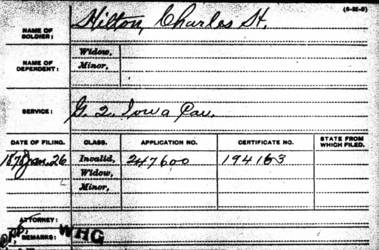 (3-25-9)
NAME OF SOLDIER: Hilton, Charles St.
NAME OF DEPENDENT: Widow,
Minor,
SERVICE: G. 2. Iowa Cav.
DATE OF FILING. CLASS. APPLICATION NO. CERTIFICATE NO. STATE FROM WHICH FILED.
1878 Jan. 26 Invalid, 247600 194163
Widow,
Minor,
ATTORNEY:
REMARKS: WHG